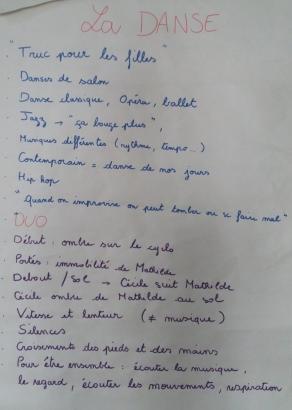 La DANSE
"Truc pour les filles"
. Danses de salon
. Danse classique, Opéra, ballet
. Jazz → "ça bouge plus",
. Musiques différentes (rythme, tempo...)
. Contemporain = danse de nos jours
. Hip hop
. "Quand on improvise on peut tomber ou se faire mal"
DUO
. Début : ombre sur le cyclo
. Portés : immobilité de Mathilde
. Debout / Sol → Cécile suit Mathilde
. Cécile ombre de Mathilde au sol
. Vitesse et lenteur (≠ musique)
. Silences
. Croisements des pieds et des mains
. Pour être ensemble : écouter la musique,
le regard, écouter les mouvements, respiration